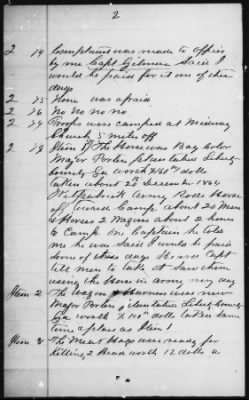 2
2 74 Complaint was made to officer
by me Capt Gilmore said I
would be paid for it one of these
days
2 75 None was afraid
2 76 No no no no
2 77 Troops were camped at Midway
Church 5 miles off
2 78 Item 1 The Horse was Bay Color
Major Porters plantation Liberty
County Ga worth $160 dolls
taken about 20th December 1864
Kilpatrick Army Rode Horse
off toward Camp about 20 Men
4 Horses 2 Wagons about 2 hours
to Camp Mc Captain he told
me he was Said I wuld be paid
some of these days Heard Capt
tell men to take it Saw them
using the Horse in army next day
Item 2 The Wagon & Harness were new
Major Porters plantation Liberty County
Ga worth $ 110 dolls taken same
time & place as Item 1
Item 3 The Meat Hogs were ready for
Killing 2 Head worth 12 dolls a